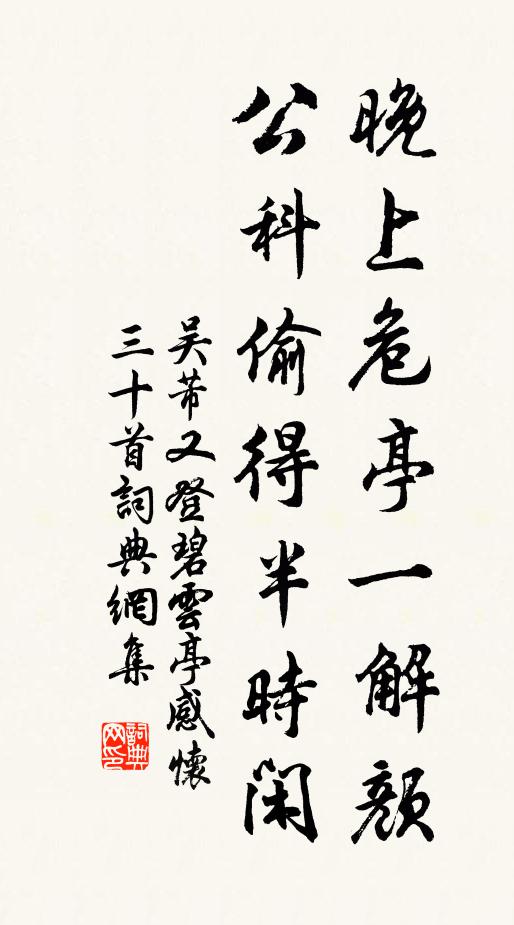 晚上危亭一解顏
公科偷得半時閑
吴芾又登碧雲亭感懷
三十首詞典網集
詞典网印